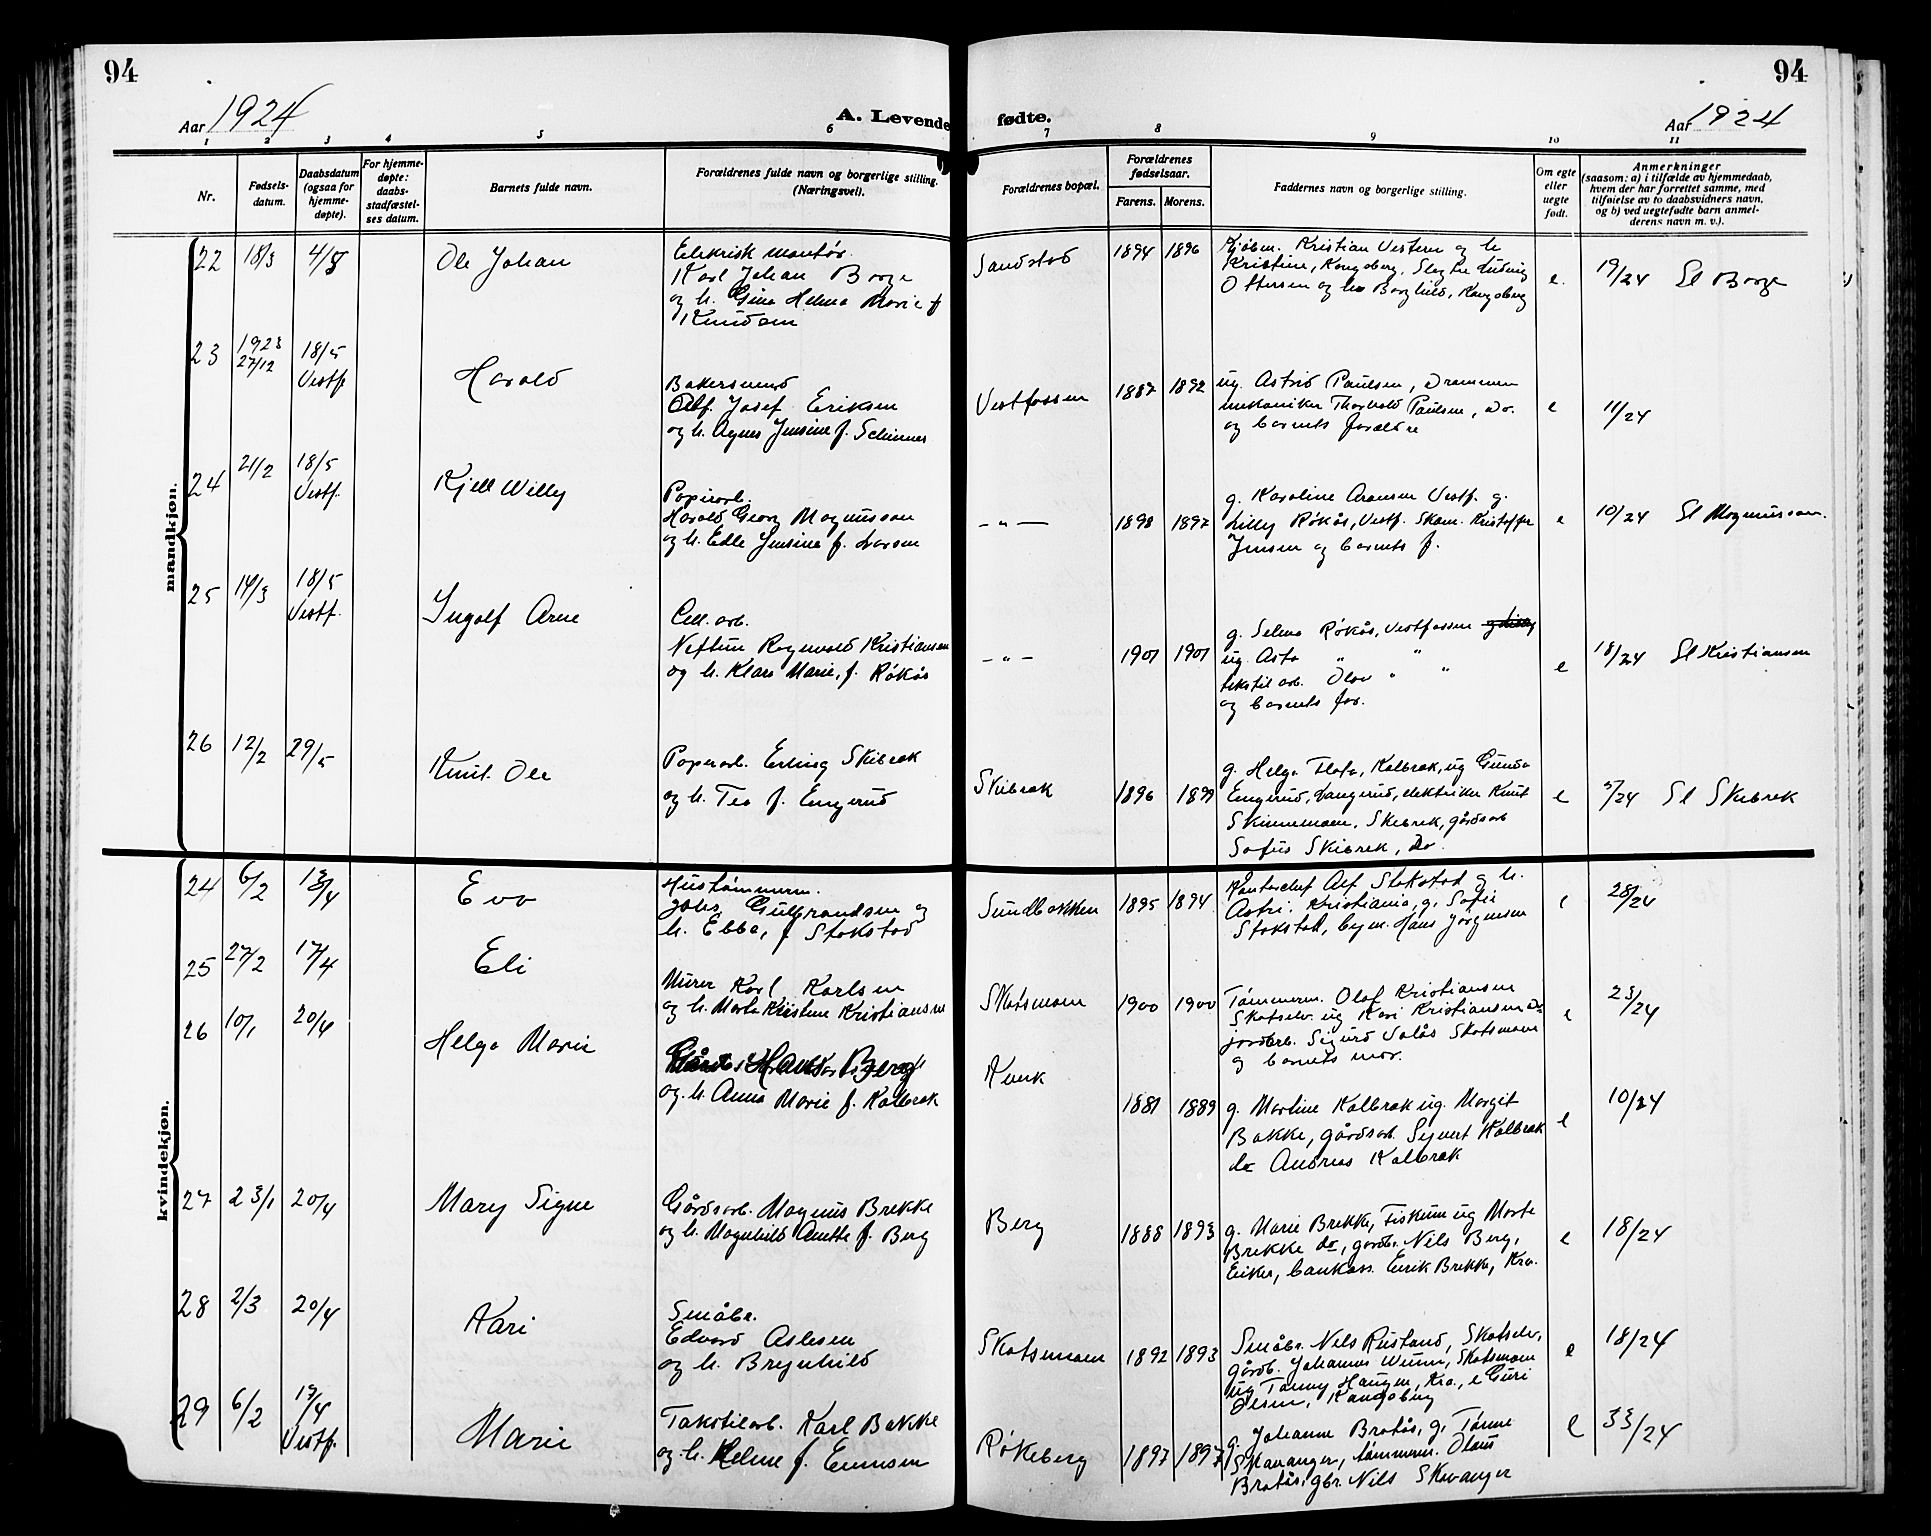 94
94
Aar 1924
A. Levende fødte.
Aar 1924
1 2 3 4 5 6 7 8 9 10 11
Nr.
Fødsels-
datum.
Daabsdatum
(ogsaa for
hjemme-
døpte).
For hjemme-
døpte:
daabs-
stadfæstel-
ses datum.
Barnets fulde navn.
Forældrenes fulde navn og borgerlige stilling.
(Næringsvei).
Forældrenes bopæl.
Forældrenes
fødselsaar.
Farens. Morens.
Faddernes navn og borgerlige stilling.
Om egte
eller
uegte
født.
Anmerkninger
(saasom: a) i tilfælde av hjemmedaab,
hvem der har forrettet samme, med
tilføielse av to daabsvidners navn,
og b) ved uegtefødte barn anmel-
derens navn m. v.).
mandkjøn.
22 18/3 4/5 Ole Johan
Elektrisk montør
Karl Johan Borge
og h. Gina Helma Marie f
Knudsen
Sandstad 1894 1896
Kjøbm. Kristian Vestern og h
Kristine, Kongsberg, Slagter Ludvig
Ottersen og h Borghild, Kongsberg
e. 19/24 Sl Borge
23 1923
27/12
18/5
Vestf.
Harald
Bakersvend
Alf Josef Eriksen
og h. Agnes Jensine f. Schinnes
Vestfossen 1887 1892
ug. Astrid Paulsen, Drammen
mekaniker Thorvald Paulsen, do.
og barnets forældre
e 11/24
24 21/2 18/5
Vestf.
Kjell Willy
Papirarb.
Harald Georg Magnussen
og h. Edle Jensine f. Larsen
- " - 1898 1897
g. Karoline Aronsen Vestf. g.
Lilly Røkås, Vestf. Skom. Kristoffer
Jensen og barnets f.
e 10/24 Sl Magnussen.
25 14/3 18/5
Vestf.
Ingolf Arne
Cell. arb.
Neftun Ragnvald Kristiansen
og h. Klara Marie, f. Røkås
- " - 1901 1901
g. Selma Røkås, Vestfossen
ug. Asta " "
tekstil arb. Olav " "
og barnets for.
e 18/24 Sl Kristiansen
26 12/2 29/5 Knut Ole
Papirarb. Erling Skibrek
og h. Tea f. Engerud
Skibrek 1896 1899
g. Helga Flata, Kalbrek, ug Gunda
Engerud, Langerud, elektriker Knut
Skinnemoen, Skibrek, gårdsarb
Sofus Skibrek, do.
e 5/24 Sl Skibrek
kvindekjøn.
24 6/2 13/4 Eva
Hustømmerm.
Johs. Gulbrandsen og
h. Ebba, f Stokstad
Sundbakken 1895 1894
Kontorchef Alf Stokstad og h.
Astri, Kristiania, g. Sofie
Stokstad, bygm. Hans Jørgensen
e 28/24
25 27/2 17/4 Eli
Murer Karl Karlsen
og h. Marta Kristine Kristiansen
Skotsmoen 1900 1900
Tømmerm. Olaf Kristiansen
Skotselv. ug Kari Kristiansen do
jordarb. Sigurd Valås Skotsmoen
og barnets mor.
e 23/24
26 10/1 20/4 Helga Marie
Hans Berg
og h. Anna Marie f. Kalbrek
Kunk 1881 1889
g. Martine Kalbrek ug. Margit
Bakke, gårdsarb. Syvert Kalbrek
do Andreas Kalbrek
e 10/24
27 23/1 20/4 Mary Signe
Gårdsarb. Magnus Brekke
og h. Magnhild Anette f. Berg
Berg 1888 1893
g. Marie Brekke, Fiskum ug Marte
Brekke do, gardbr. Nils Berg,
Eiker, bankass. Enrik Brekke, Kra.
e 18/24
28 2/3 20/4 Kari
Småbr.
Edvard Aslesen
og h. Brynhild
Skotsmoen 1892 1893
Småbr. Nils Rustand, Skotselv,
gårdb. Johannes Wenn, Skotsmoen
ug Tanny Haugen, Kra., e Guri
Olsen, Kongsberg
e 18/24
29 6/2 19/4
Vestf.
Marie
Takstilarb. Karl Bakke
og h. Helene f. Evensen
Røkeberg 1897 1897
g. Johanne Bratås, g. Tørine
Skavanger, tømmerm. Olaus
Bratås, gbr. Nils Skavanger
e 33/24